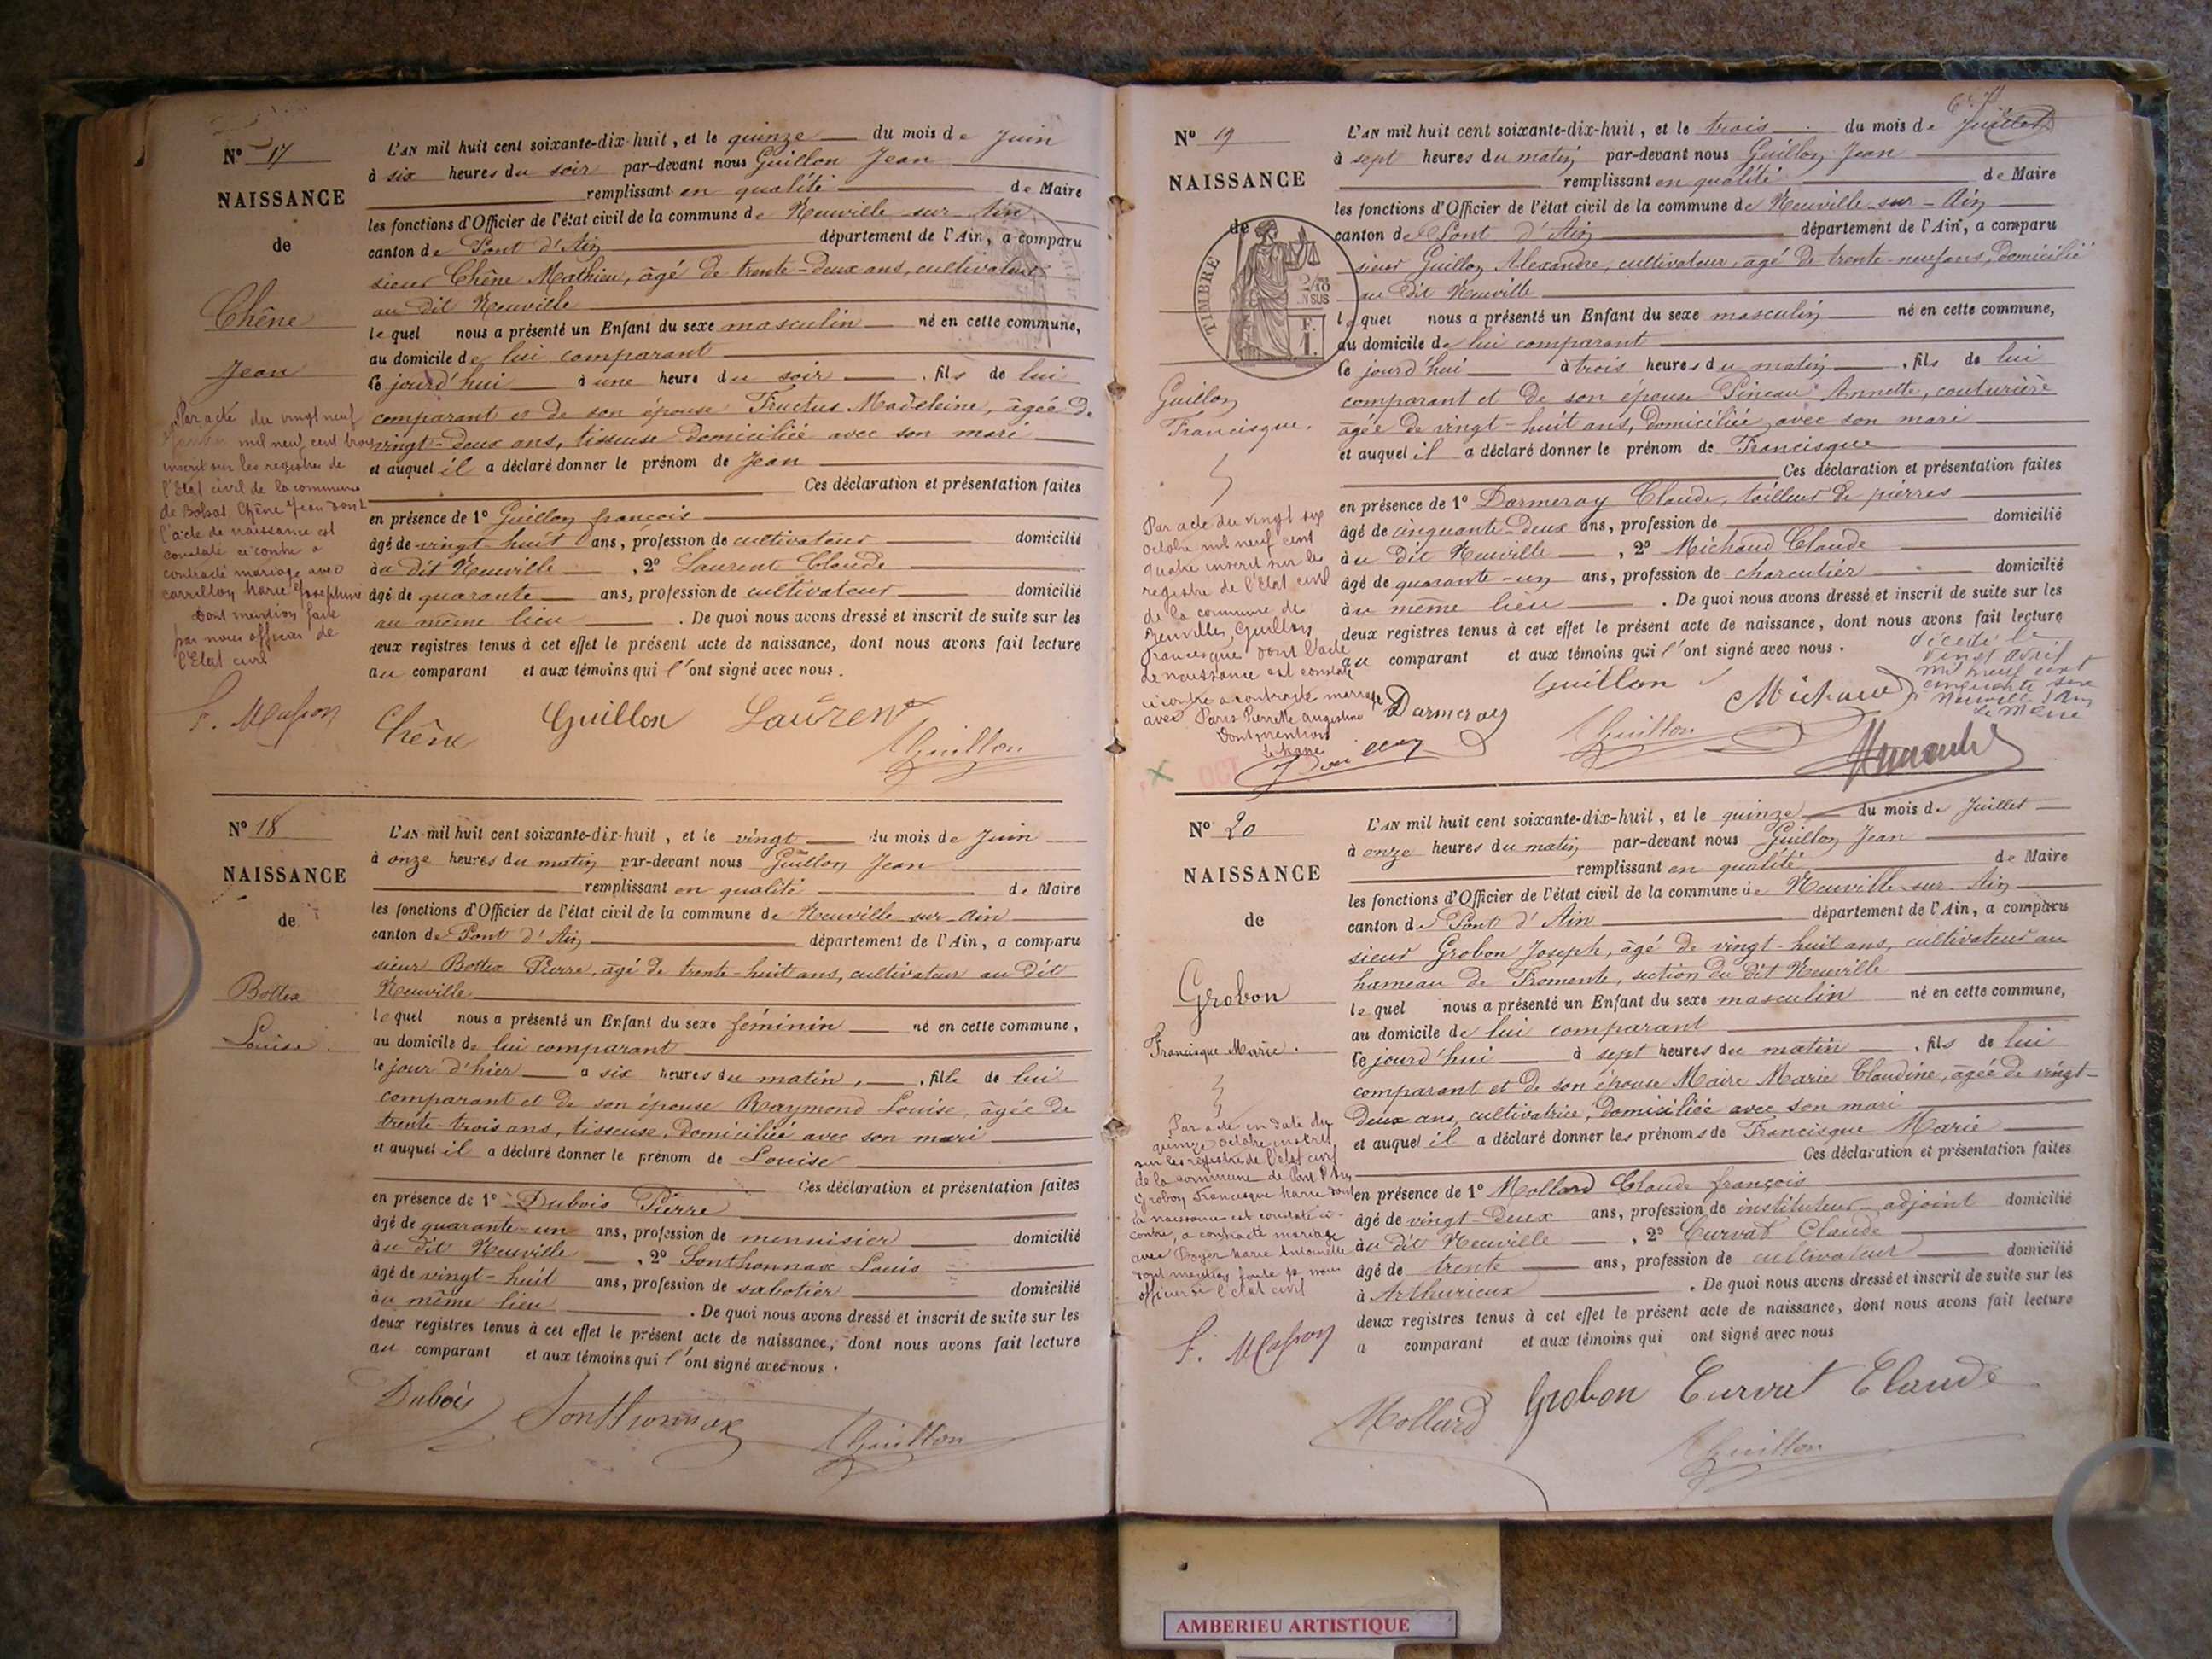 N° 17
NAISSANCE
de
Chêne
Jean
Par acte du vingt neuf
mil neuf cent trois
inscrit sur les registres de
l'Etat civil de la commune
de Chêne Jean dont
l'acte de naissance est
constaté ci contre a
contracté mariage avec
Carrillon Marie Josephine
Dont mention faite
par nous officier de
l'Etat civil
L'AN mil huit cent soixante-dix-huit, et le quinze du mois de Juin
à six heures du soir par-devant nous Guillon Jean
remplissant en qualité de Maire
les fonctions d'Officier de l'état civil de la commune de Neuville-sur-Ain
canton de Pont d'Ain département de l'Ain, a comparu
sieur Chêne Mathieu, âgé de trente-deux ans, cultivateur
au dit Neuville
lequel nous a présenté un Enfant du sexe masculin né en cette commune,
au domicile de lui comparant
ce jourd'hui à une heure du soir, fils de lui
comparant et de son épouse Fructus Madeleine, âgée de
vingt-deux ans, tisseuse domiciliée avec son mari
et auquel il a déclaré donner le prénom de Jean
Ces déclaration et présentation faites
en présence de 1° Guillon françois
âgé de vingt-huit ans, profession de cultivateur domicilié
à au dit Neuville, 2° Laurent Claude
âgé de quarante ans, profession de cultivateur domicilié
au même lieu. De quoi nous avons dressé et inscrit de suite sur les
deux registres tenus à cet effet le présent acte de naissance, dont nous avons fait lecture
au comparant et aux témoins qui l'ont signé avec nous.
Chêne Guillon Laurent
Guillon
N° 18
NAISSANCE
de
Bottex
Louise
L'AN mil huit cent soixante-dix-huit, et le vingt du mois de Juin
à onze heures du matin par-devant nous Guillon Jean
remplissant en qualité de Maire
les fonctions d'Officier de l'état civil de la commune de Neuville-sur-Ain
canton de Pont d'Ain département de l'Ain, a comparu
sieur Bottex Pierre, âgé de trente-huit ans, cultivateur au dit
Neuville
lequel nous a présenté un Enfant du sexe féminin né en cette commune,
au domicile de lui comparant
le jour d'hier à six heures du matin, fille de lui
comparant et de son épouse Raymond Louise, âgée de
trente-trois ans, tisseuse, domiciliée avec son mari
et auquel il a déclaré donner le prénom de Louise
Ces déclaration et présentation faites
en présence de 1° Dubois Pierre
âgé de quarante-un ans, profession de menuisier domicilié
à au dit Neuville, 2° Sonthonnax Louis
âgé de vingt-huit ans, profession de sabotier domicilié
au même lieu. De quoi nous avons dressé et inscrit de suite sur les
deux registres tenus à cet effet le présent acte de naissance, dont nous avons fait lecture
au comparant et aux témoins qui l'ont signé avec nous.
Dubois Sonthonnax Guillon
N° 19
NAISSANCE
de
TIMBRE
2/10
EN SUS
F.
1.
Guillon
Francisque.
Par acte du vingt six
octobre mil neuf cent
quatre inscrit sur les
registre de l'Etat civil
de la commune de
Neuville, Guillon
francisque dont l'acte
de naissance est constaté
ci contre a contracté mariage
avec Paris Pierrette augustine
Dont mention
OCT
L'AN mil huit cent soixante-dix-huit, et le trois du mois de Juillet
à sept heures du matin par-devant nous Guillon Jean
remplissant en qualité de Maire
les fonctions d'Officier de l'état civil de la commune de Neuville-sur-Ain
canton de Pont d'Ain département de l'Ain, a comparu
sieur Guillon Alexandre, cultivateur, âgé de trente-neuf ans, domicilié
au dit Neuville
lequel nous a présenté un Enfant du sexe masculin né en cette commune,
au domicile de lui comparant
ce jourd'hui à trois heures du matin, fils de lui
comparant et de son épouse Pineau Annette, couturière
âgée de vingt-huit ans, domiciliée avec son mari
et auquel il a déclaré donner le prénom de Francisque
Ces déclaration et présentation faites
en présence de 1° Darmeray Claude, tailleur de pierres
âgé de cinquante-deux ans, profession de domicilié
à au dit Neuville, 2° Michaud Claude
âgé de quarante-un ans, profession de charcutier domicilié
à au même lieu. De quoi nous avons dressé et inscrit de suite sur les
deux registres tenus à cet effet le présent acte de naissance, dont nous avons fait lecture
au comparant et aux témoins qui l'ont signé avec nous.
décédé le
vingt avril
mil neuf cent
cinquante
Neuville s/Ain
Le Maire
Guillon Michaud
Darmeray Guillon
N° 20
NAISSANCE
de
Grobon
Francisque Marie.
Par acte en date du
quinze octobre inscrit
sur les registre de l'etat civil
de la commune de Pont d'Ain
Grobon Francisque Marie dont
la naissance est constaté ci-
contre, a contracté mariage
avec Marie Antoinette
dont mention faite p. nous
officier de l'etat civil
L'AN mil huit cent soixante-dix-huit, et le quinze du mois de Juillet
à onze heures du matin par-devant nous Guillon Jean
remplissant en qualité de Maire
les fonctions d'Officier de l'état civil de la commune de Neuville-sur-Ain
canton de Pont d'Ain département de l'Ain, a comparu
sieur Grobon Joseph, âgé de vingt-huit ans, cultivateur au
hameau de Fromente, section du dit Neuville
lequel nous a présenté un Enfant du sexe masculin né en cette commune,
au domicile de lui comparant
ce jourd'hui à sept heures du matin, fils de lui
comparant et de son épouse Maire Marie Claudine, âgée de vingt-
deux ans, cultivatrice, domiciliée avec son mari
et auquel il a déclaré donner les prénoms de Francisque Marie
Ces déclaration et présentation faites
en présence de 1° Mollard Claude françois
âgé de vingt-deux ans, profession de instituteur-adjoint domicilié
à au dit Neuville, 2° Curvat Claude
âgé de trente ans, profession de cultivateur domicilié
à Arthurieux. De quoi nous avons dressé et inscrit de suite sur les
deux registres tenus à cet effet le présent acte de naissance, dont nous avons fait lecture
a comparant et aux témoins qui ont signé avec nous
Mollard Grobon Curvat Claude
Guillon
AMBERIEU ARTISTIQUE